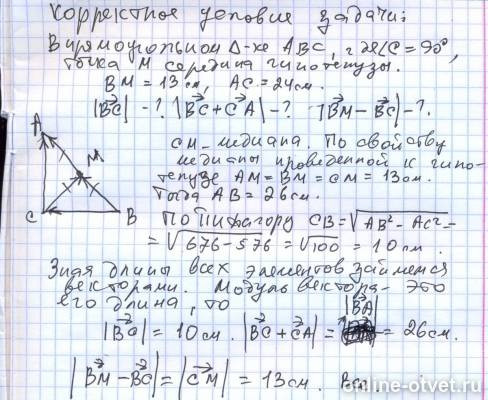 Корректное условие задачи:
В прямоугольном Δ-ке ABC, где ∠C = 90°,
точка M середина гипотенузы.
BM = 13 см, AC = 24 см.
|BC| - ? |BC + CA| - ? |BM - BC| - ?
A
M
C B
CM - медиана. По свойству
медианы проведенной к гипо-
тенузе AM = BM = CM = 13 см.
Тогда AB = 26 см.
По Пифагору CB = √AB² - AC² =
= √676 - 576 = √100 = 10 см.
Зная длины всех элементов займемся
векторами. Модуль вектора - это
его длина, то
|BC| = 10 см. |BC + CA| = |BA| = 26 см.
|BM - BC| = |CM| = 13 см.
online-otvet.ru